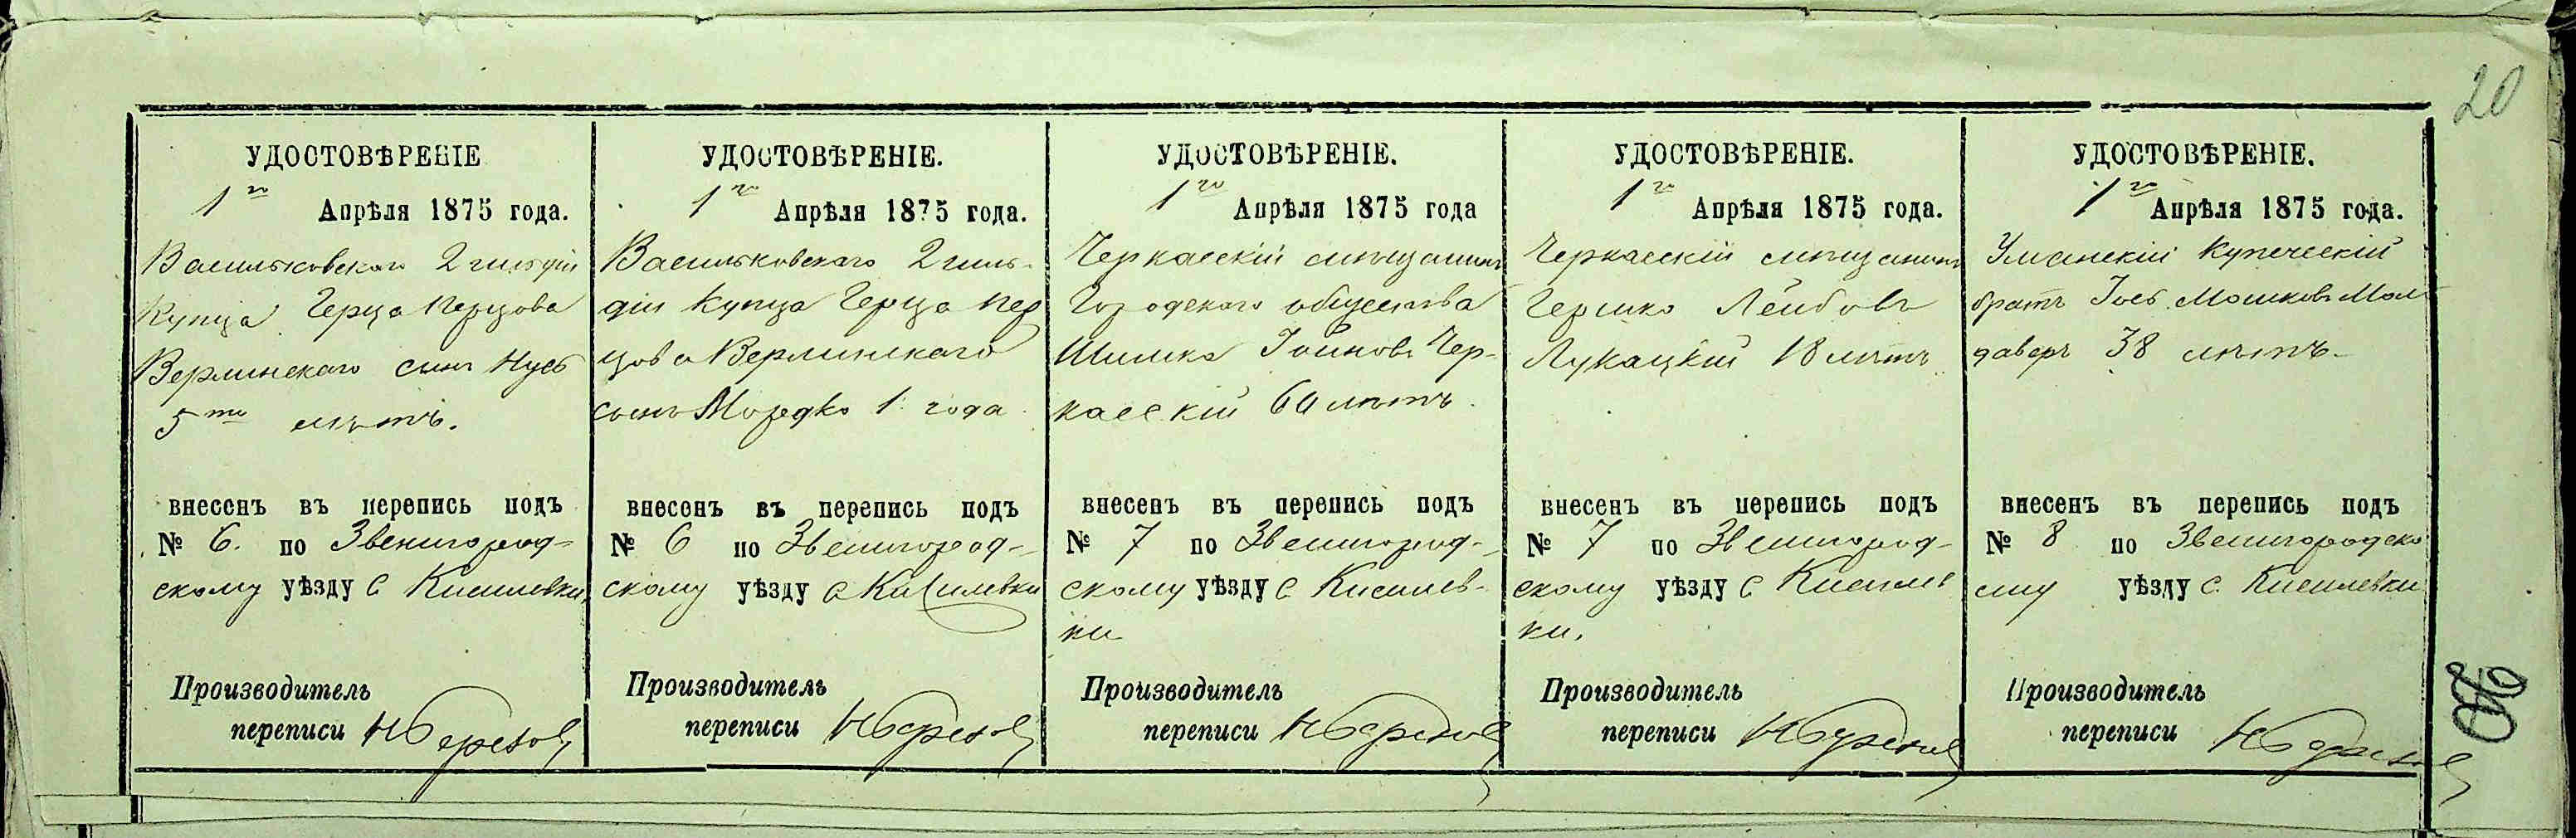 20
УДОСТОВѢРЕНІЕ
1го Апрѣля 1875 года.
Васильковскаго 2 гильдіи
Купца Герца Перцова
Верлинскаго сынъ Нусъ
5ти лѣтъ.
внесенъ въ перепись подъ
№ 6. по Звенигород-
скому уѣзду с Киселевки
Производитель
переписи
УДОСТОВѢРЕНІЕ.
1го Апрѣля 1875 года.
Васильковскаго 2 гиль-
діи Купца Герца Пер
цова Верлинскаго
сынъ Мордко 1 года
внесенъ въ перепись подъ
№ 6 по Звенигород-
скому уѣзду с Киселевки
Производитель
переписи
УДОСТОВѢРЕНІЕ.
1го Апрѣля 1875 года
Черкасскій мѣщанинъ
Городскаго общества
Шимко Іоиновъ Чер-
касскій 60 лѣтъ.
внесенъ въ перепись подъ
№ 7 по Звенигород-
скому уѣзду с Киселев-
ки
Производитель
переписи
УДОСТОВѢРЕНІЕ.
1го Апрѣля 1875 года.
Черкасскій мѣщанинъ
Гершко Лейбовъ
Лукацкій 18 лѣтъ
внесенъ въ перепись подъ
№ 7 по Звенигород-
скому уѣзду с Киселев
ки.
Производитель
переписи
УДОСТОВѢРЕНІЕ.
1го Апрѣля 1875 года.
Уманскій Купеческій
братъ Іосъ Мошковъ Мол-
даверъ 38 лѣтъ.
внесенъ въ перепись подъ
№ 8 по Звенигородско
му уѣзду с. Киселевки
Производитель
переписи